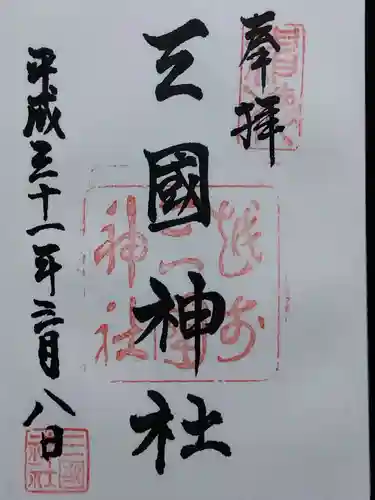 奉拝
三國神社
平成三十一年三月八日
越前
三国
神社
三國
神社